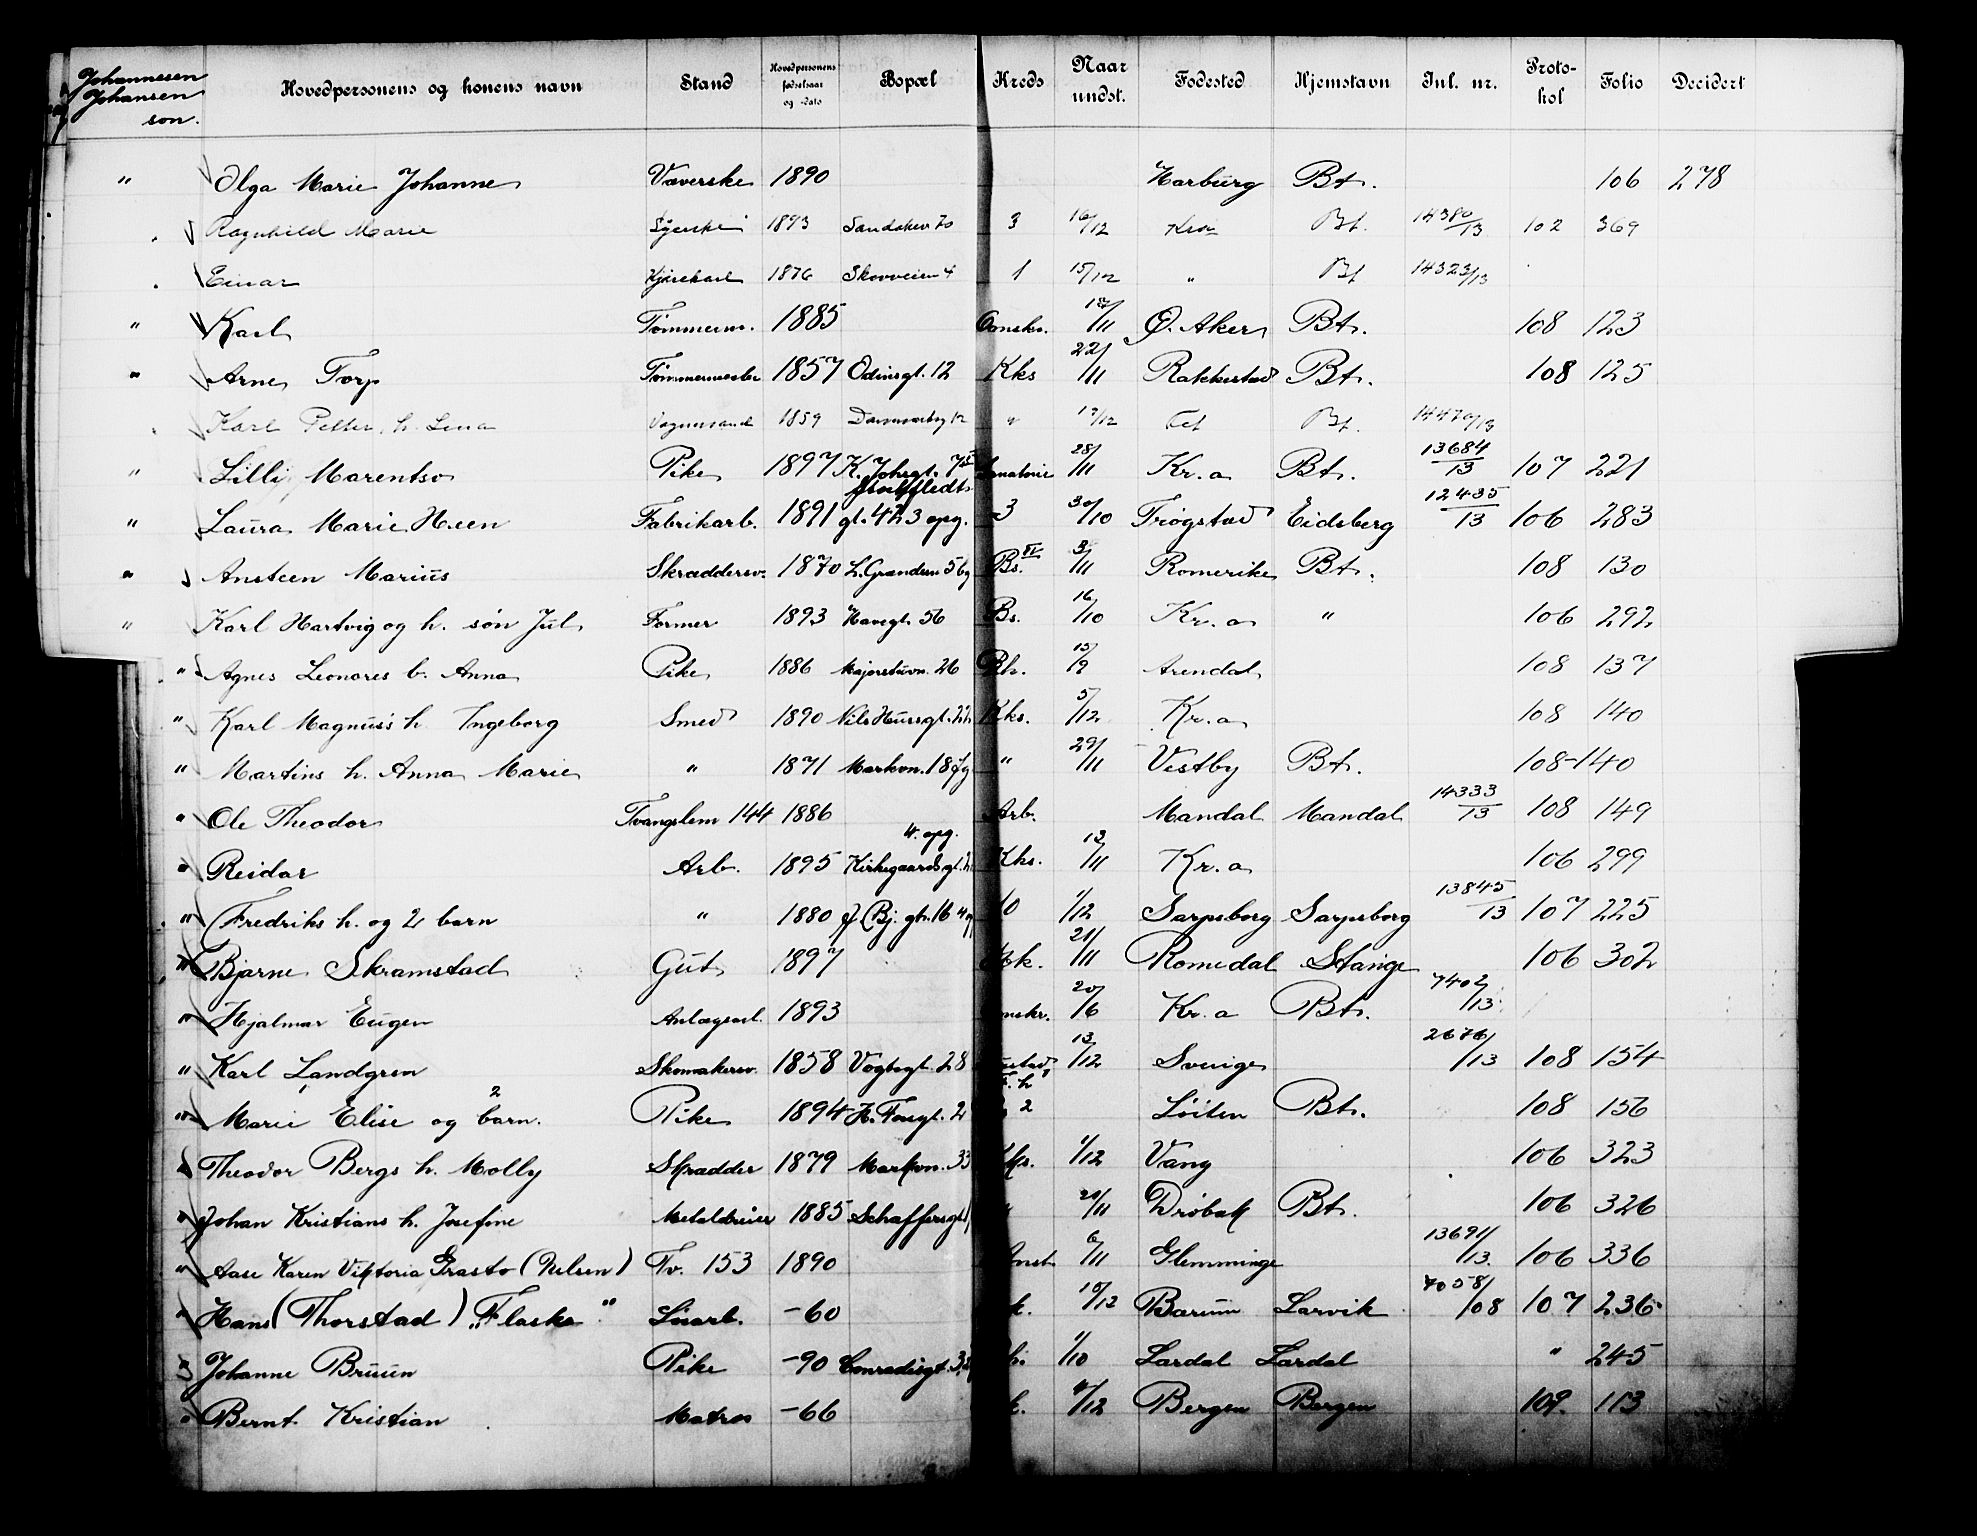 Johannesen
Johansen
son.
Hovedpersonens og konens navn Stand Hovedpersonens fødselsaar og -dato Bopæl Kreds Naar undst. Fødested Hjemstavn Jnl. nr. Protokol Folio Decidert
" Olga Marie Johanne Væverske 1890 Harburg Bt. 106 278
Ragnhild Marie Syerske 1893 Sandakerv 70 3 16/12 Kra Bt. 14380/13 102 369
Einar Kjørekarl 1876 Skovveien 4 1 15/12 " Bt 14323/13
" Karl Tømmerm. 1885 Omskr. 18/11 Ø. Aker Bt. 108 123
" Arne Torp Tømmermester 1857 Odinsgt. 12 Kks 22/11 Rakkestad Bt. 108 125
Karl Petter, h. Lina Vognmand 1859 " 17/12 Fet Bt. 14470/13
" Lilli Marentse Pike 1897 K. Johsgt. 7 Sanatorie 28/11 Kr.a Bt. 13684/13 107 221
" Laura Marie Heen Fabrikarb. 1891 gt. 42 3 opg. 3 30/10 Trøgstad Eidsberg 12435/13 106 283
" Ansteen Marius Skræddersv. 1870 L. Grændsen 5 Bs. IV 3/11 Romerike Bt. 108 130
" Karl Hartvig og h. søn Jul. Former 1893 Havegt. 56 Bs. 16/10 Kr.a " 106 292
" Agnes Leonores b. Anna Pike 1886 Majorstuvn. 26 15/9 Arendal 108 137
" Karl Magnus's h. Ingeborg Smed 1890 Nils Huusgt. 22 Kks. 5/12 Kr.a 108 140
" Martins h. Anna Marie " 1871 Markvn. 18 " 29/11 Vestby Bt. 108-140
" Ole Theodor Tvangslem 144 1886 Arb. Mandal Mandal 14333/13 108 149
" Reidar Arb. 1895 4. opg. Kirkegaardsgt. Kks. 12/11 Kr.a 106 299
" Fredriks h. og 2 barn " 1880 Bj. gt. 16 10 1/12 Sarpsborg Sarpsborg 13845/13 107 225
" Bjarne Skramstad Gut 1897 21/11 Romedal Stange 106 302
" Hjalmar Eugen Anlægsarb. 1893 20/6 Kr.a Bt. 7402/13
" Karl Landgren Skomakersv. 1858 Vogtsgt. 28 13/12 Sverige 2676/13 108 154
" Marie Elise og 2 barn. Pike 1894 2 Løiten Bt. 108 156
" Theodor Bergs h. Molly Skrædder 1879 Markvn. 33 1/12 Vang 106 323
" Johan Kristians h. Josefine Metaldreier 1885 Schaffersgt 20/11 Drøbak Bt. 106 326
" Aase Karen Viktoria Grasto (Nelsen) Tv. 153 1890 6/11 Glemminge 13691/13. 106 336
" Hans (Thorstad) "Flaska" Løsarb. -60 15/12 Bærum Larvik 7058/08 107 236
" Johanne Bruun Pike -90 Conradisgt. 1/10 Lardal Lardal " 245
" Bernt Kristian Matros -66 Bergen Bergen 109. 113